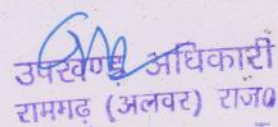 उपखण्ड अधिकारी
रामगढ़ (अलवर) राज0